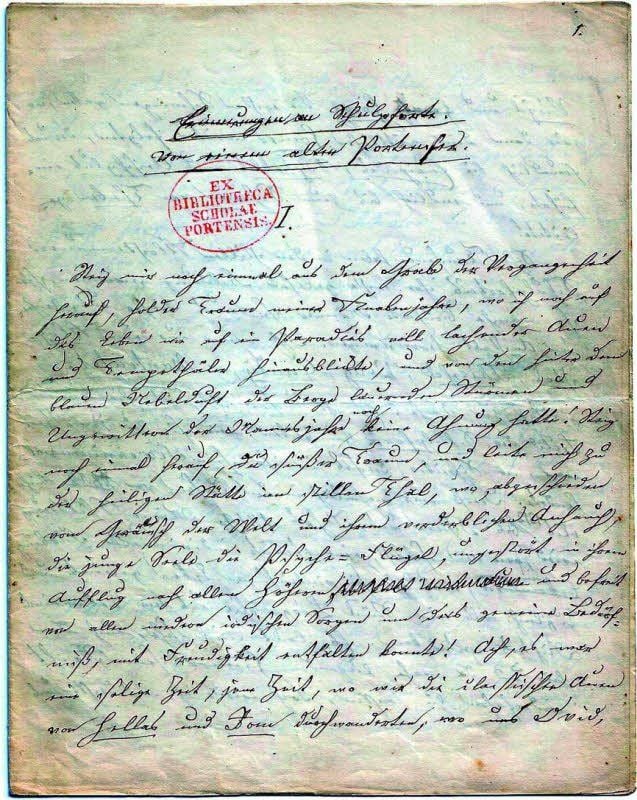 1.
Erinnerungen an Schulpforte.
Von einem alten Portenser.
EX
BIBLIOTHECA
SCHOLAE
PORTENSIS.
I.
Steig mir noch einmal aus dem Grabe der Vergangenheit
herauf, holder Traum meiner Knabenjahre, wo ich noch auf
das Leben wie auf ein Paradies voll lachender Auen
und Tempethäler hinausblickte, und von den hinter dem
blauen Nebelduft der Berge lauernden Stürmen und
Ungewittern der Mannesjahre noch keine Ahnung hatte! Steig
noch einmal herauf, du süßer Traum, und leite mich zu
der heiligen Stätte im stillen Thal, wo, abgeschieden
vom Geräusch der Welt und ihrem verderblichen Anhauch,
die junge Seele die Psyche=Flügel, ungestört in ihrem
Aufflug nach allem Höheren und befreit
von allen niedern irdischen Sorgen um das gemeine Bedürf=
niß, mit Freudigkeit entfalten konnte! Ach, es war
eine selige Zeit, jene Zeit, wo wir die classischen Auen
von Hellas und Rom durchwanderten, wo uns Ovid,